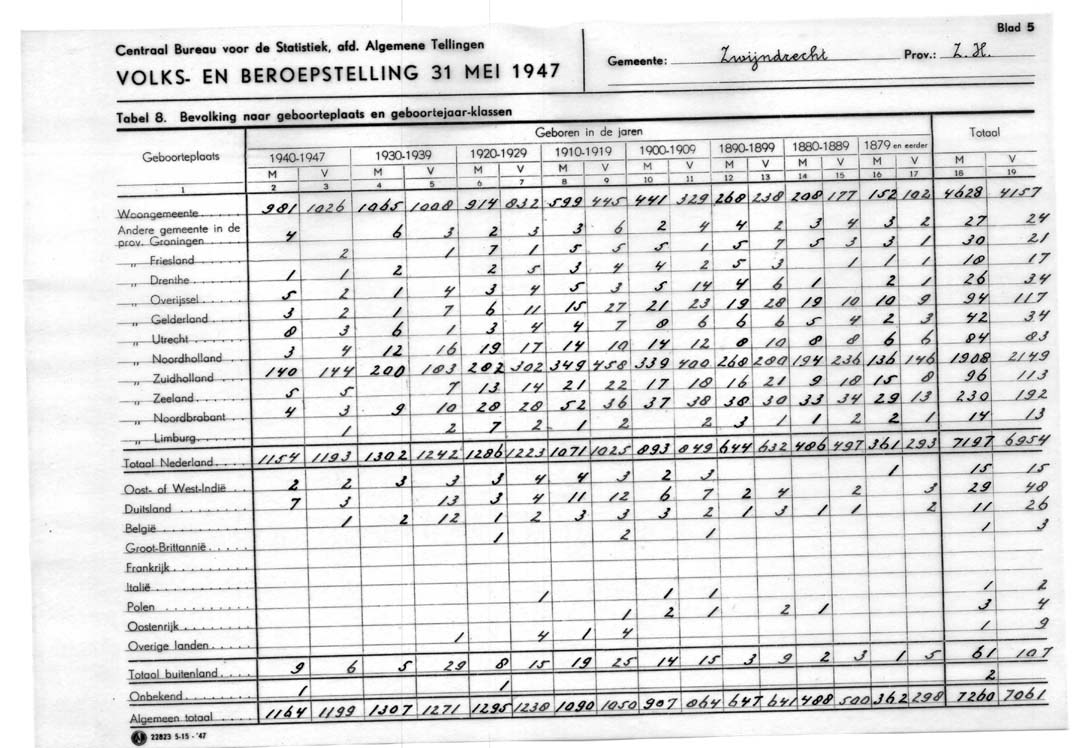 Blad 5
Centraal Bureau voor de Statistiek, afd. Algemene Tellingen
VOLKS- EN BEROEPSTELLING 31 MEI 1947
Gemeente: Zwijndrecht Prov.: Z. H.
Tabel 8. Bevolking naar geboorteplaats en geboortejaar-klassen
Geboorteplaats Geboren in de jaren Totaal
1940-1947 1930-1939 1920-1929 1910-1919 1900-1909 1890-1899 1880-1889 1879 en eerder
M V M V M V M V M V M V M V M V M V
1 2 3 4 5 6 7 8 9 10 11 12 13 14 15 16 17 18 19
Woongemeente 981 1026 1065 1008 914 832 599 445 441 329 268 238 208 177 152 102 4628 4157
Andere gemeente in de
prov. Groningen 4 6 3 2 3 3 6 2 4 4 2 3 4 3 2 27 24
„ Friesland 2 1 7 1 5 5 5 1 5 7 5 3 3 1 30 21
„ Drenthe 1 1 2 2 5 3 4 4 2 5 3 1 1 1 18 17
„ Overijssel 5 2 1 4 3 4 5 3 5 14 4 6 1 2 1 26 34
„ Gelderland 3 2 1 7 6 11 15 27 21 23 19 28 19 10 10 9 94 117
„ Utrecht 8 3 6 1 3 4 4 7 8 6 6 6 5 4 2 3 42 34
„ Noordholland 3 4 12 16 19 17 14 10 14 12 8 10 8 8 6 6 84 83
„ Zuidholland 140 144 200 183 282 302 349 458 339 400 268 280 194 236 136 146 1908 2149
„ Zeeland 5 5 7 13 14 21 22 17 18 16 21 9 18 15 8 96 113
„ Noordbrabant 4 3 9 10 28 28 52 36 37 38 38 30 33 34 29 13 230 192
„ Limburg 1 2 7 2 1 2 2 3 1 1 2 2 1 14 13
Totaal Nederland 1154 1193 1302 1242 1286 1223 1071 1025 893 849 644 632 486 497 361 293 7197 6954
Oost- of West-Indië 2 2 3 3 3 4 4 3 2 3 1 15 15
Duitsland 7 3 13 3 4 11 12 6 7 2 4 2 3 29 48
België 1 2 12 1 2 3 3 3 2 1 3 1 1 2 11 26
Groot-Brittannië 1 2 1 1 3
Frankrijk
Italië
Polen 1 1 1 1 2
Oostenrijk 1 2 1 2 1 3 4
Overige landen 1 4 1 4 1 9
Totaal buitenland 9 6 5 29 8 15 19 25 14 15 3 9 2 3 1 5 61 107
Onbekend 1 1 2
Algemeen totaal 1164 1199 1307 1271 1295 1238 1090 1050 907 864 647 641 488 500 362 298 7260 7061
22823 5-15-'47